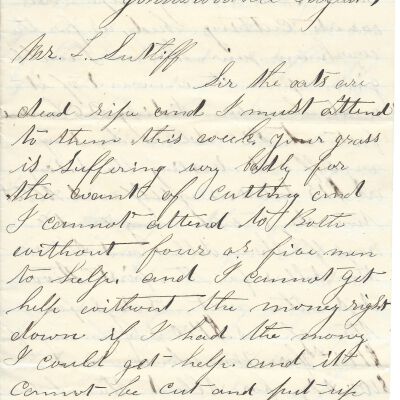 Mr. L. Sutliff
Sir the oats are
dead ripe and I must attend
to them this week. your grass
is suffering very badly for
the want of cutting and
I cannot attend to Both
without four or five men
to help. and I cannot get
help without the money right
down if I had the money
I could get help. and it
cannot be cut and put up